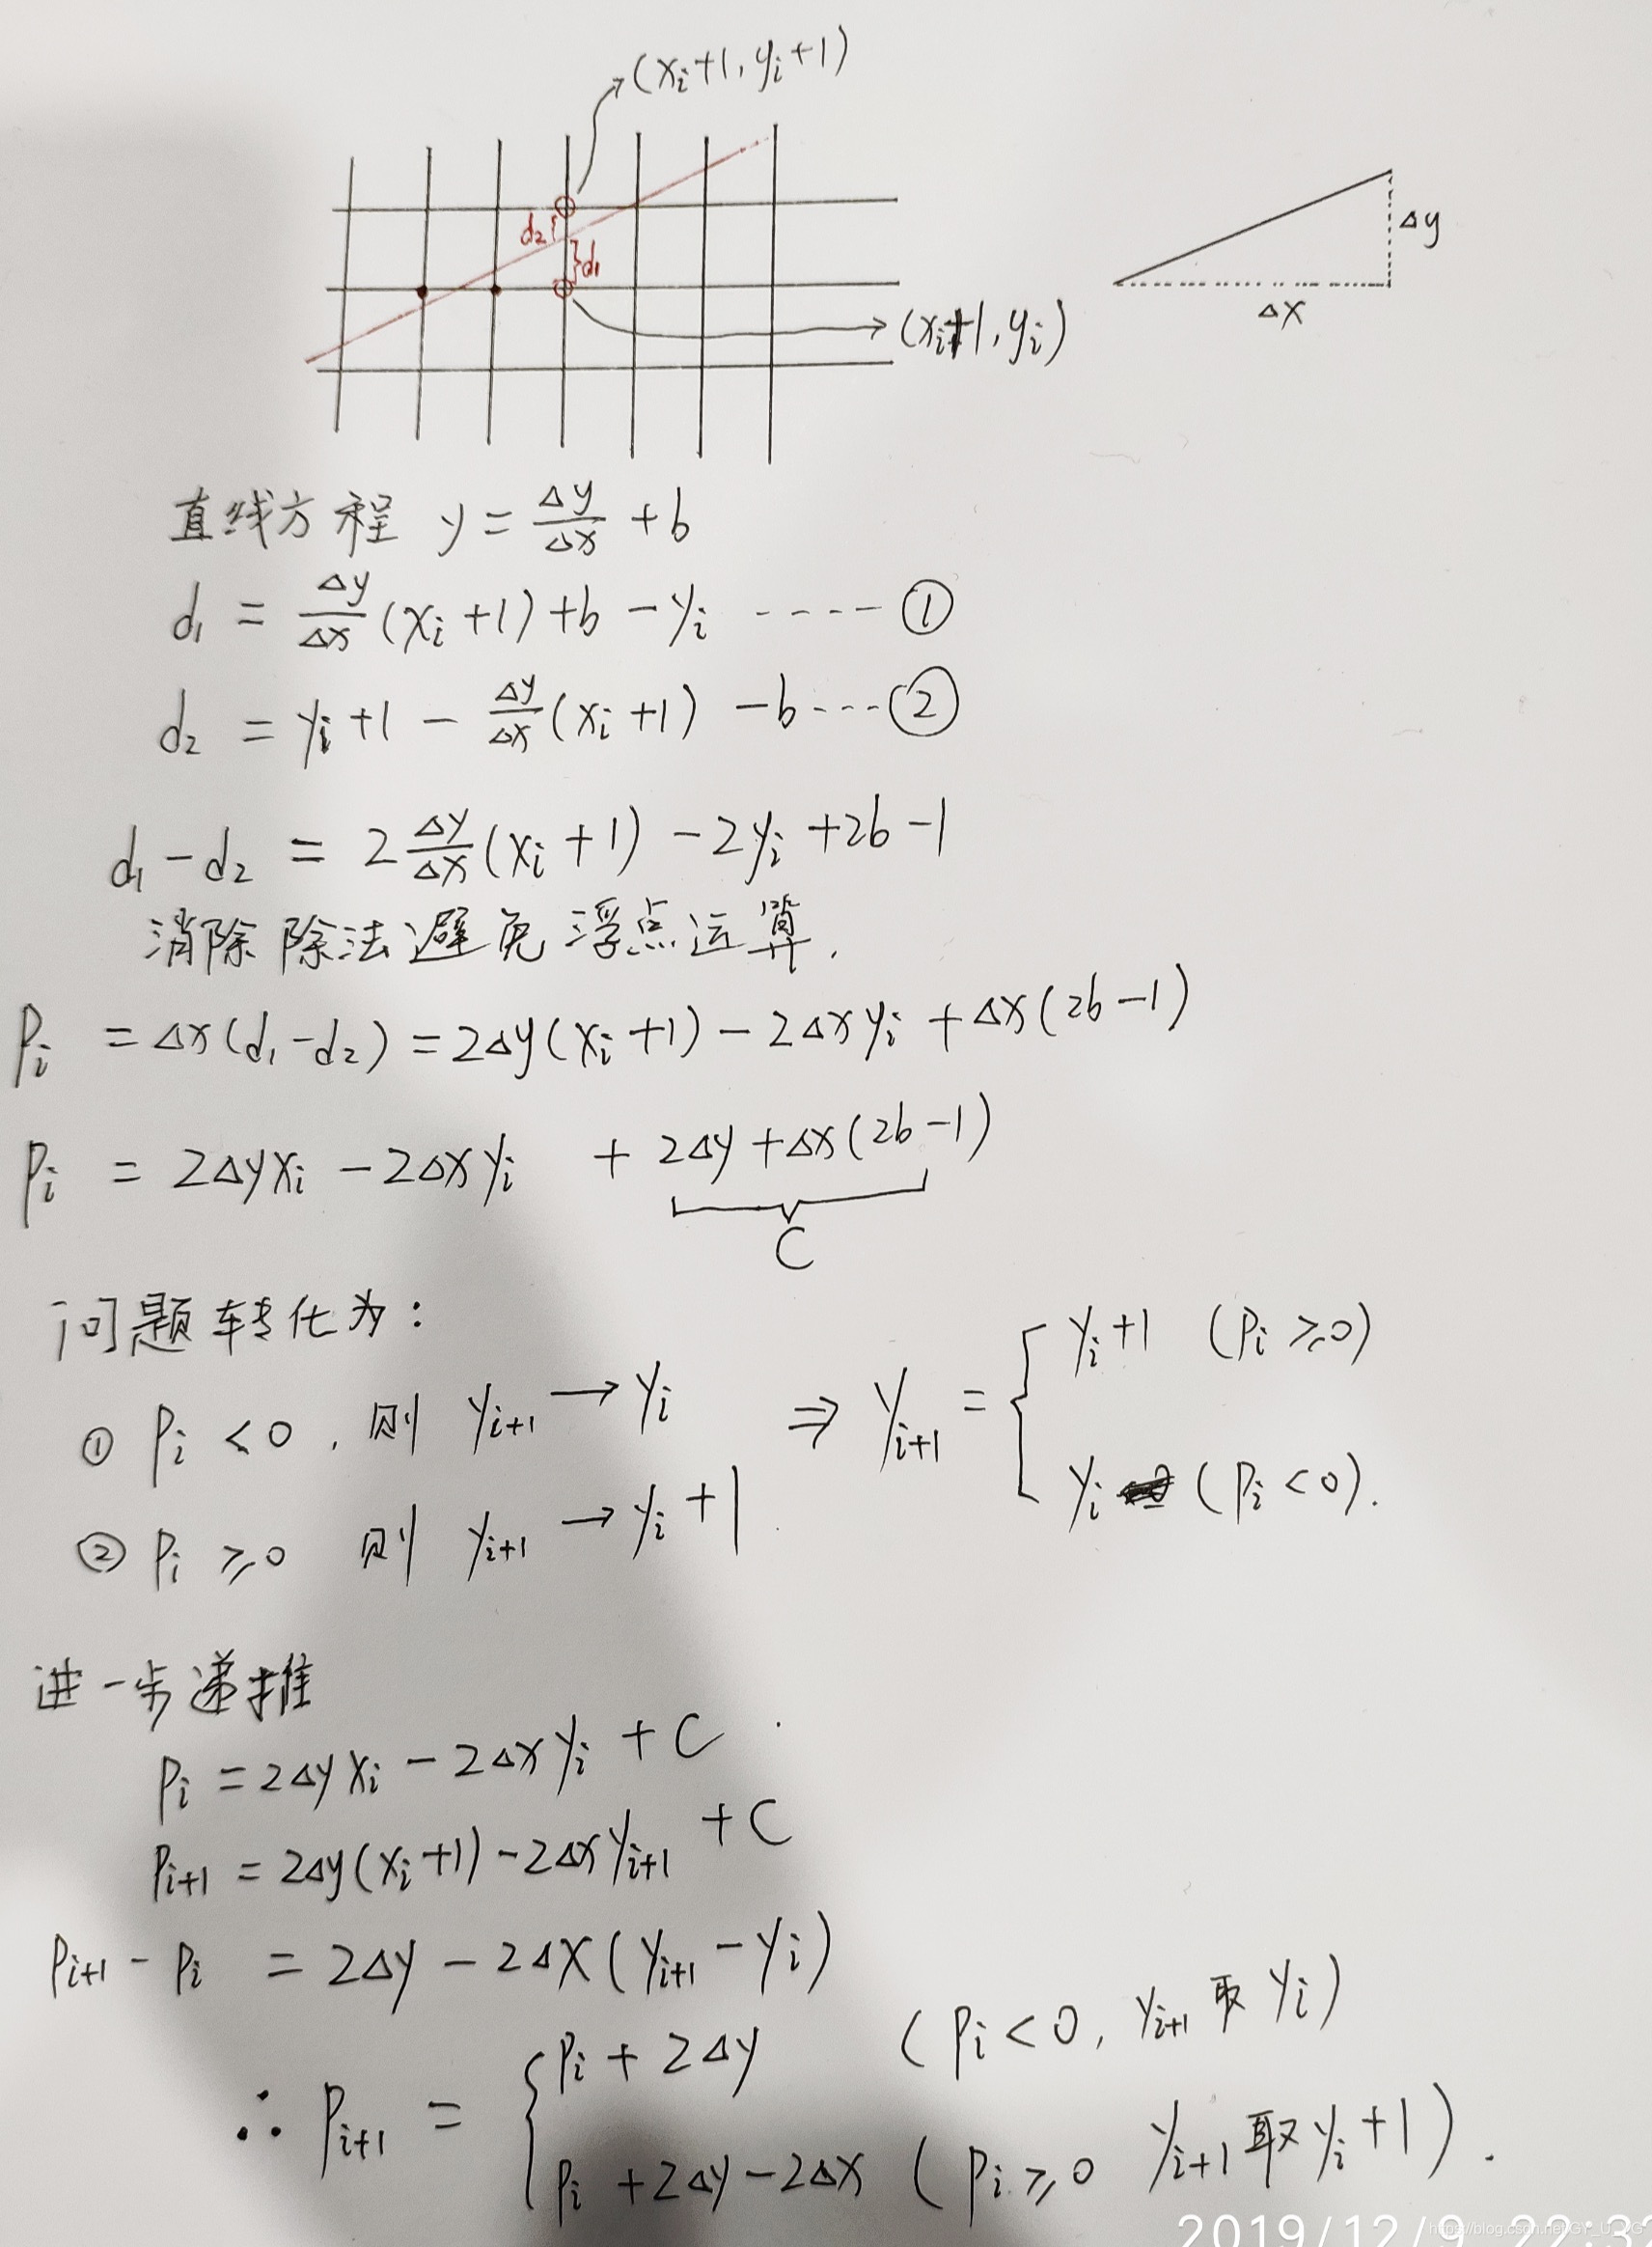 (xᵢ+1, yᵢ+1)
d₂
d₁
(xᵢ+1, yᵢ)
Δy
Δx
直线方程 y = Δy/Δx + b
d₁ = Δy/Δx (xᵢ+1) + b − yᵢ ----- ①
d₂ = yᵢ+1 − Δy/Δx (xᵢ+1) − b ---- ②
d₁ − d₂ = 2 Δy/Δx (xᵢ+1) − 2yᵢ + 2b − 1
消除除法避免浮点运算.
Pᵢ = Δx(d₁−d₂) = 2Δy(xᵢ+1) − 2Δxyᵢ + Δx(2b−1)
Pᵢ = 2Δyxᵢ − 2Δxyᵢ + 2Δy + Δx(2b−1)
C
问题转化为:
① Pᵢ < 0, 则 yᵢ₊₁ → yᵢ
② Pᵢ ≥ 0 则 yᵢ₊₁ → yᵢ+1
⇒ yᵢ₊₁ = { yᵢ+1 (Pᵢ ≥ 0)
yᵢ (Pᵢ < 0).
进一步递推
Pᵢ = 2Δyxᵢ − 2Δxyᵢ + C
Pᵢ₊₁ = 2Δy(xᵢ+1) − 2Δxyᵢ₊₁ + C
Pᵢ₊₁ − Pᵢ = 2Δy − 2Δx(yᵢ₊₁ − yᵢ)
∴ Pᵢ₊₁ = { Pᵢ + 2Δy (Pᵢ < 0, yᵢ₊₁ 取 yᵢ)
Pᵢ + 2Δy − 2Δx (Pᵢ ≥ 0 yᵢ₊₁ 取 yᵢ+1).
2019/12/9 22:3